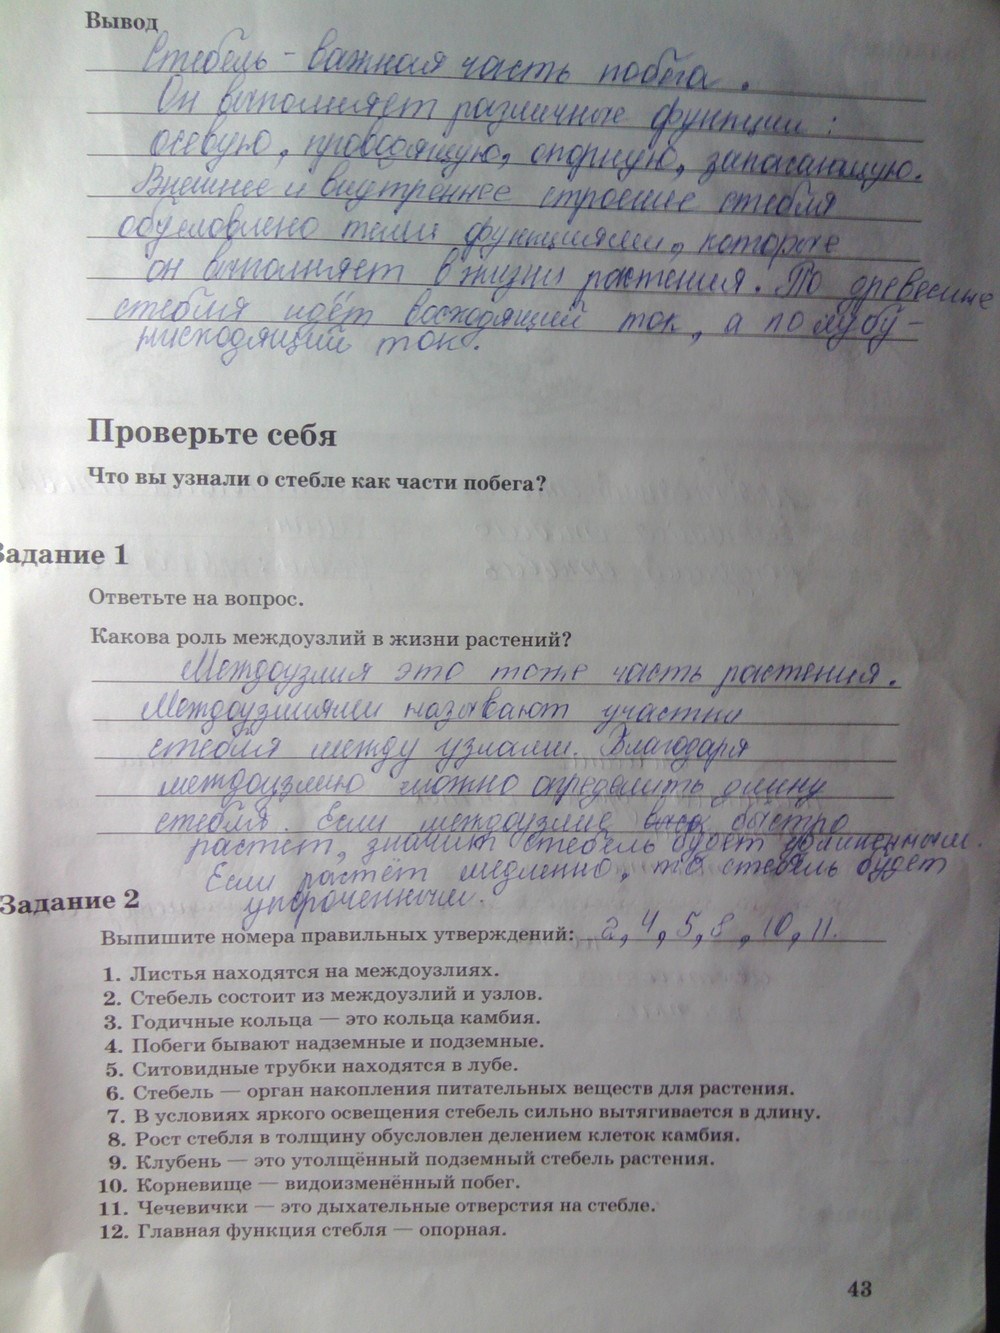 Вывод
Стебель - важная часть побега.
Он выполняет различные функции:
осевую, проводящую, опорную, запасающую.
Внешнее и внутреннее строение стебля
обусловлено теми функциями, которые
он выполняет в жизни растения. По древесине
стебля идёт восходящий ток, а по лубу -
нисходящий ток.
Проверьте себя
Что вы узнали о стебле как части побега?
Задание 1
Ответьте на вопрос.
Какова роль междоузлий в жизни растений?
Междоузлия это тоже часть растения.
Междоузлиями называют участки
стебля между узлами. Благодаря
междоузлию можно определить длину
стебля. Если междоузлие быстро
растёт, значит стебель будет удлиненным.
Если растёт медленно, то стебель будет
укороченным.
Задание 2
Выпишите номера правильных утверждений: 2, 4, 5, 8, 10, 11.
1. Листья находятся на междоузлиях.
2. Стебель состоит из междоузлий и узлов.
3. Годичные кольца — это кольца камбия.
4. Побеги бывают надземные и подземные.
5. Ситовидные трубки находятся в лубе.
6. Стебель — орган накопления питательных веществ для растения.
7. В условиях яркого освещения стебель сильно вытягивается в длину.
8. Рост стебля в толщину обусловлен делением клеток камбия.
9. Клубень — это утолщённый подземный стебель растения.
10. Корневище — видоизменённый побег.
11. Чечевички — это дыхательные отверстия на стебле.
12. Главная функция стебля — опорная.
43